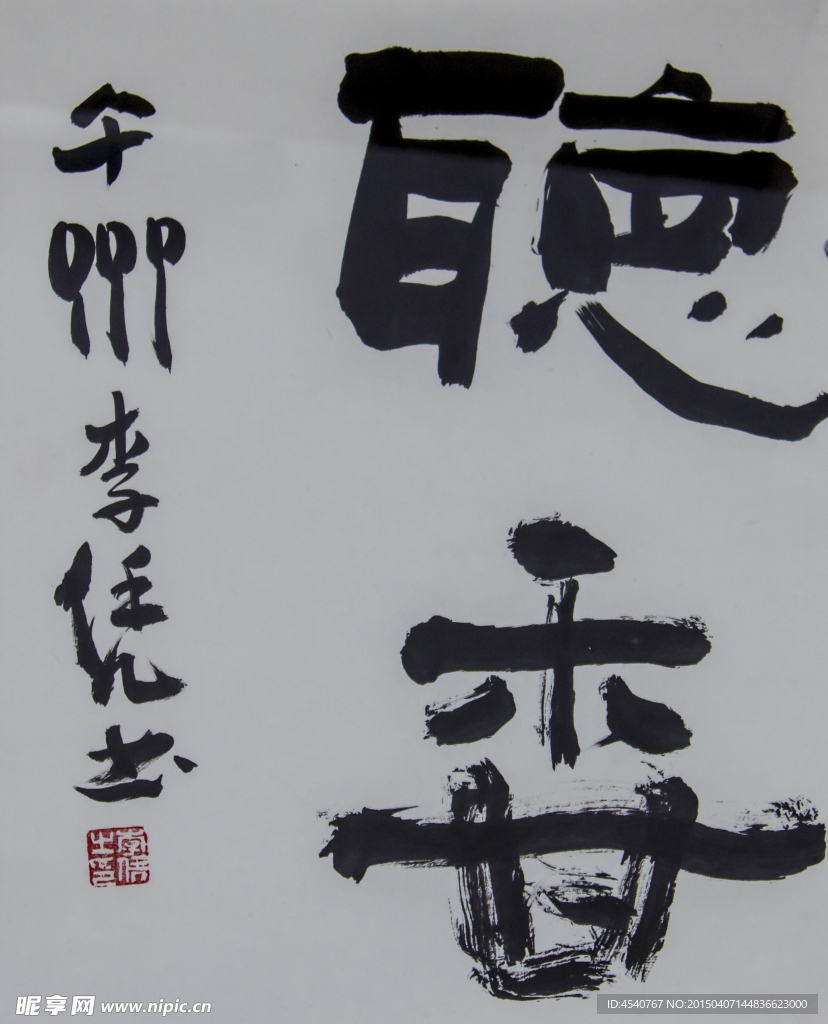 聽香
州李凭书
李凭之印
昵享网 www.nipic.cn
ID:4540767 NO:20150407144836623000